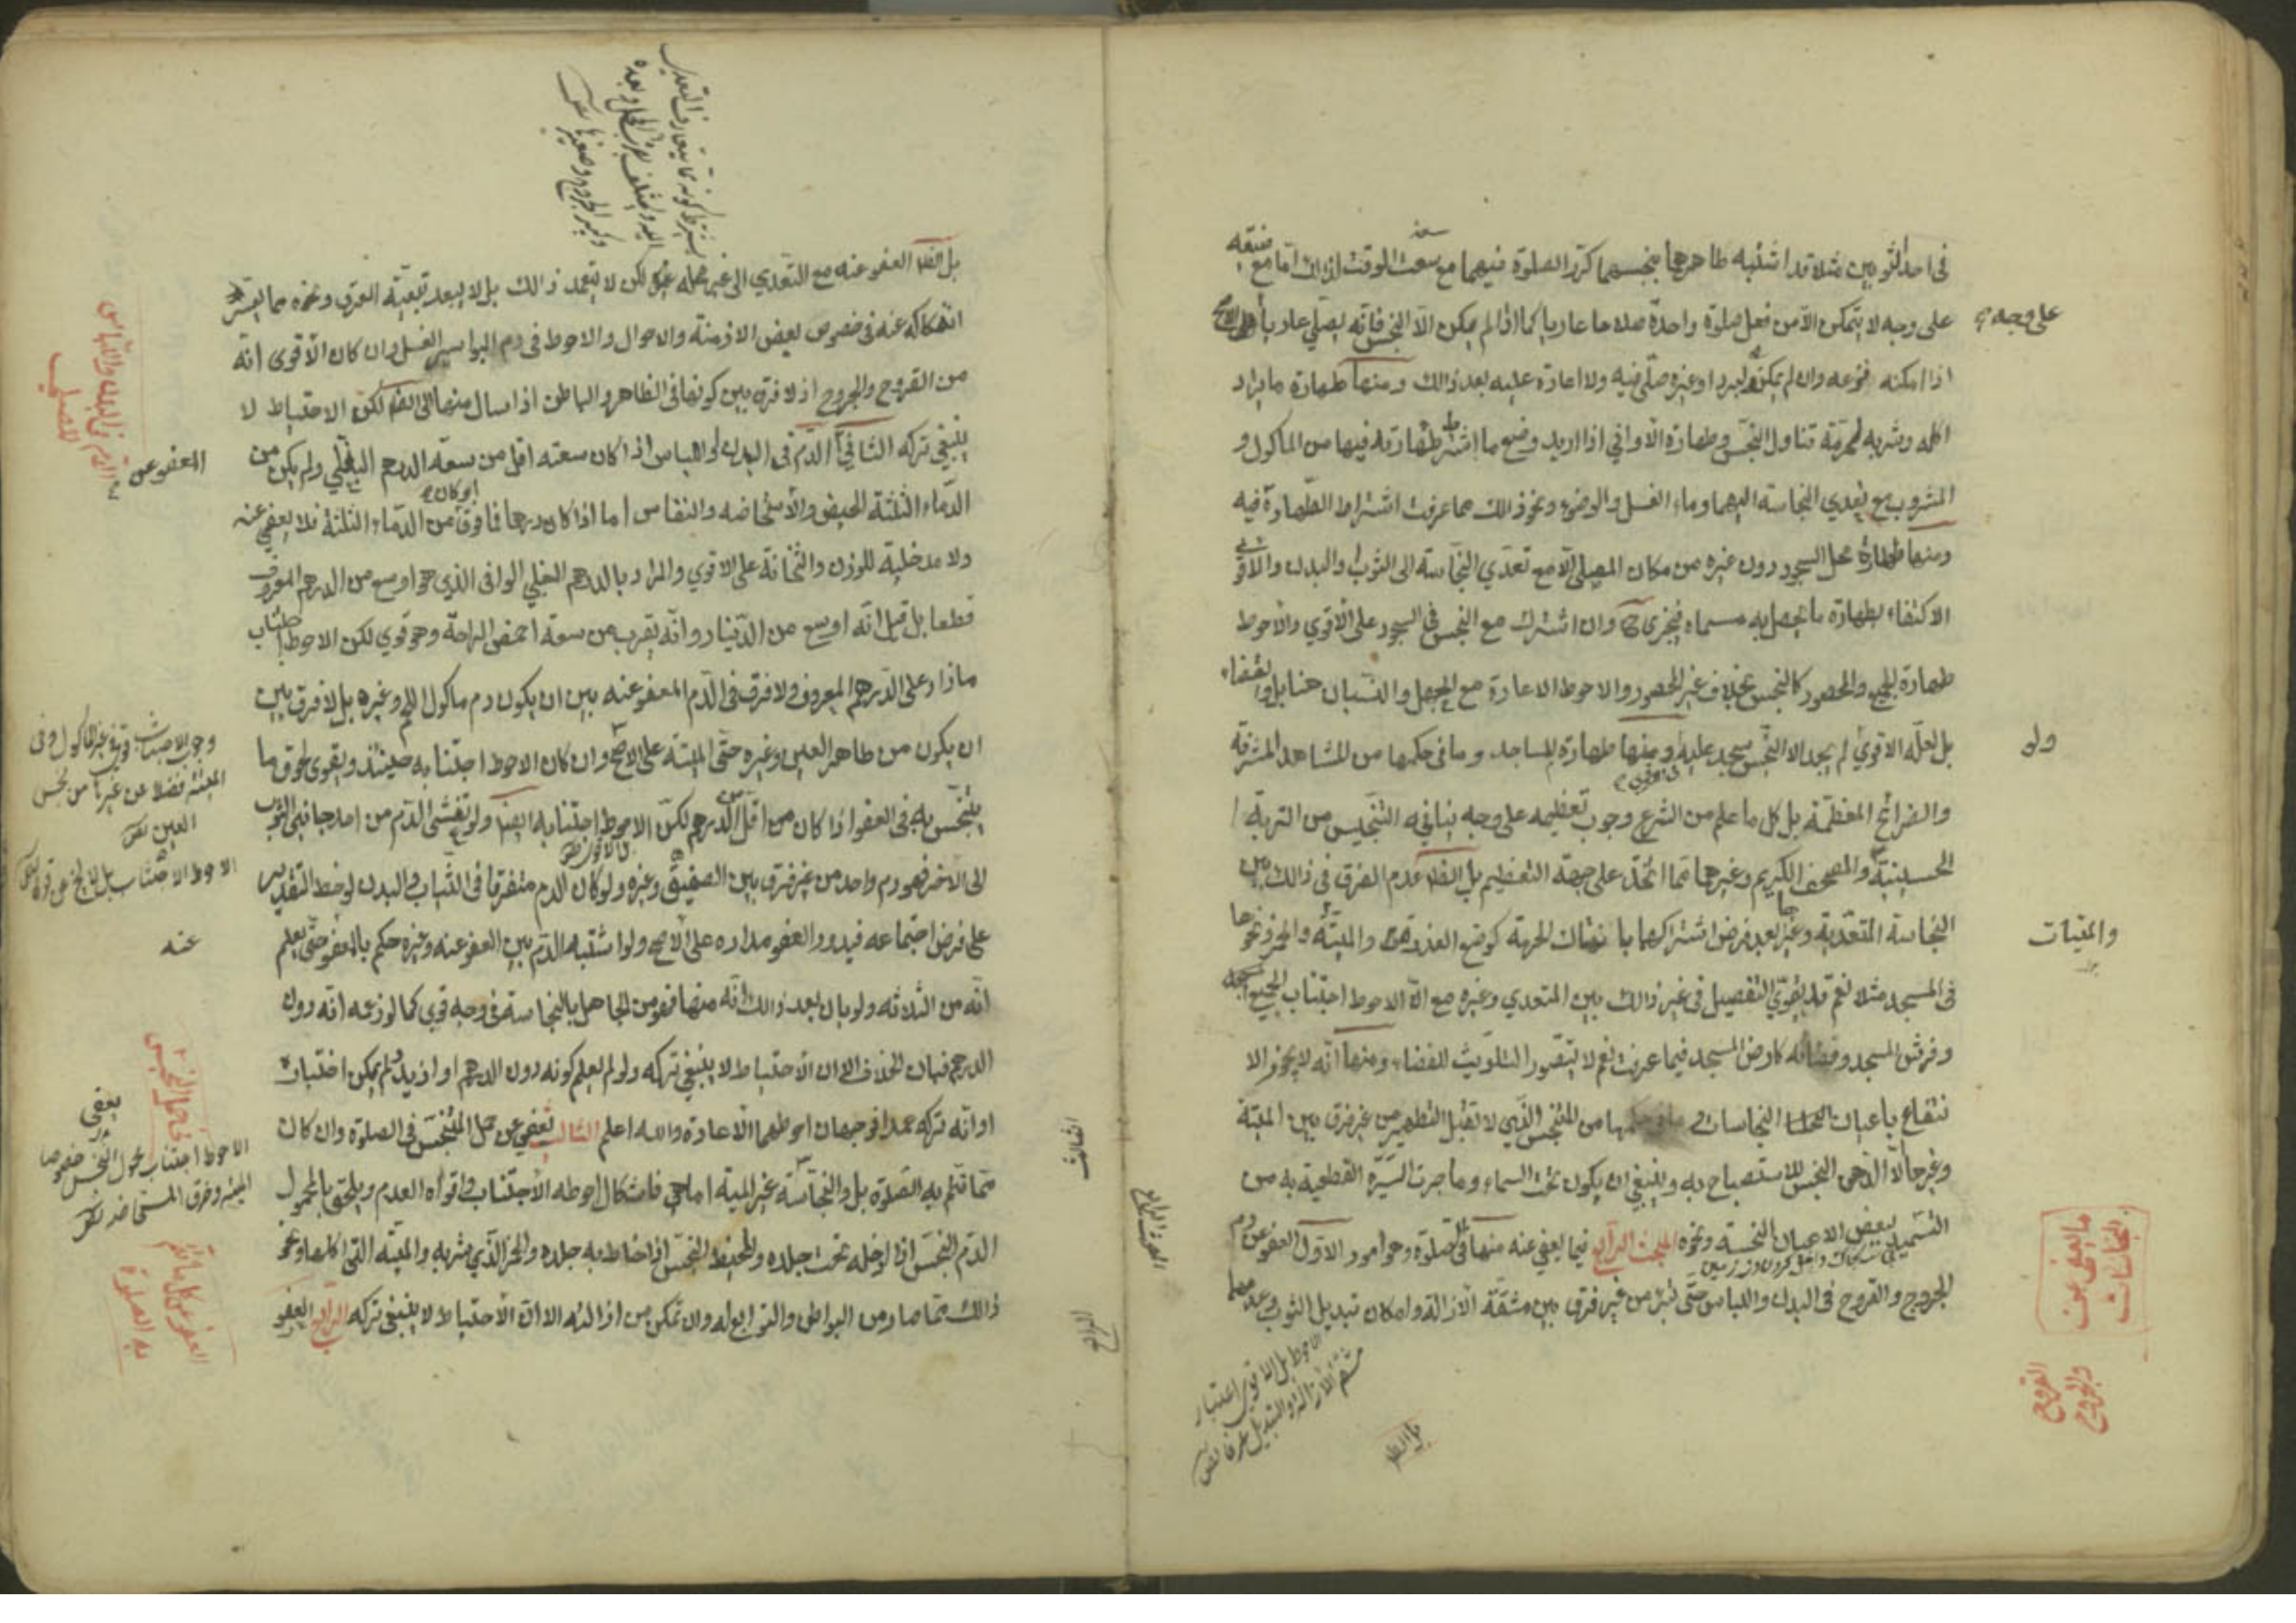 في احد الثوبين مثلا قد اشتبه طاهرهما بنجسهما كرر الصلوة فيهما مع سعة الوقت لذلك اما مع ضيقه
على وجه لا يتمكن الا من فعل صلوة واحدة صلاها عاريا كما اذا لم يمكن الا النجس فانه يصلي عاريا
اذا امكنه نزعه وان لم يمكنه لبرد او غيره صلى فيه ولا اعادة عليه بعد ذالك ومنها طهارة ما يراد
اكله وشربه لحرمة تناول النجس وطهارة الاواني اذا اريد وضع ما اشترط طهارته فيها من الماكول و
المشروب مع تعدي النجاسة اليهما وماء الغسل والوضوء ونحو ذالك مما عرفت اشتراط الطهارة فيه
ومنها طهارة محل السجود دون غيره من مكان المصلي الا مع تعدي النجاسة الى الثوب والبدن والاقوى
الاكتفاء بطهارة ما يحصل به مسماه فيجزي وان اشترك مع النجس في السجود على الاقوى والاحوط
طهارة الجميع والمحصور كالنجس بخلاف غير المحصور والاحوط الاعادة مع الجهل والنسيان هنا بل والقضاء
بل لعله الاقوى لم يجد الا النجس سجد عليه ومنها طهارة المساجد وما في حكمها من المشاهد المشرفة
والضرائح المعظمة بل كل ما علم من الشرع وجوب تعظيمه على وجه ينافيه التنجيس من التربة
الحسينية والمصحف الكريم وغيرهما مما اتخذ على جهة التعظيم بل الظ عدم الفرق في ذالك بين
النجاسة المتعدية وغيرها بعد فرض اشتراكهما بانتهاك الحرمة كوضع العذرة والميتة والخمر ونحوها
في المسجد مثلا نعم قد يقوى التفصيل في غير ذالك بين المتعدي وغيره مع ان الاحوط اجتناب الجميع
وفرش المسجد وفضائه كارض المسجد فيما عرفت نعم لا يتصور التلويث للفضاء ومنها انه لا يجوز الا
نتفاع باعيان النجاسات وما في حكمها من المتنجس التي لا تقبل التطهير من غير فرق بين الميتة
وغيرها الا الدهن النجس للاستصباح به وينبغي ان يكون تحت السماء وما جرت السيرة القطعية به من
التسميد ببعض الاعيان النجسة ونحوه المبحث الرابع فيما يعفى عنه منها في الصلوة وهو امور الاول العفو عن دم
الجروح والقروح في البدن واللباس حتى تبرء من غير فرق بين مشقة الازالة وامكان تبديل الثوب وعدمهما
على وجه
ول
والميتات
ما يعفى عن
النجاسات
القروح
والجروح
الاحوط بل الاقوى اعتبار
مشقة الازالة او التبديل عرفا
بل الظ
بل الظ العفو عنه مع التعدي الى غير محله لكن لا يتعمد ذالك بل لا يبعد تبعية العرق ونحوه مما يعسر
انفكاكه عنه في خصوص بعض الازمنة والاحوال والاحوط في دم البواسير الغسل وان كان الاقوى انه
من القروح والجروح اذ لا فرق بين كونها في الظاهر والباطن اذا سال منها الى الظ لكن الاحتياط لا
ينبغي تركه الثاني الدم في البدن واللباس اذا كان سعته اقل من سعة الدرهم البغلي ولم يكن من
الدماء الثلثة الحيض والاستحاضه والنفاس اما اذا كان درهما فما فوق او كان من الدماء الثلثة فلا يعفى عنه
ولا مدخلية للوزن والثخانة على الاقوى والمراد بالدرهم البغلي الوافي الذي هو اوسع من الدرهم المعروف
قطعا بل قيل انه اوسع من الدينار وانه يقرب من سعة اخمص الراحة وهو قوي لكن الاحوط اجتناب
ما زاد على الدرهم المعروف ولا فرق في الدم المعفو عنه بين ان يكون دم ماكول اللحم وغيره بل لا فرق بين
ان يكون من طاهر العين وغيره حتى الميتة على الاصح وان كان الاحوط اجتنابه حينئذ ويقوى لحوق ما
يتنجس به في العفو اذا كان من اقل الدرهم لكن الاحوط اجتنابه ايضا ولو تفشى الدم من احد جانبي الثوب
الى الاخر فهو دم واحد من غير فرق بين الصفيق وغيره ولو كان الدم متفرقا في الثياب والبدن لوحظ التقدير
على فرض اجتماعه فيدور العفو مداره على الاصح ولو اشتبه الدم بين العفو عنه وغيره حكم بالعفو حتى يعلم
انه من الثلاثه ولو بان بعد ذالك انه منها فهو من الجاهل بالنجاسة في وجه قوي كما لو زعمه انه دون
الدرهم فبان الخلاف الا ان الاحتياط لا ينبغي تركه ولو لم يعلم كونه دون الدرهم او ازيد ولم يمكن اختباره
او انه تركه عمدا فوجهان احوطهما الاعادة والله اعلم الثالث يعفى عن حمل المتنجس في الصلوة وان كان
مما تتم به الصلوة بل والنجاسة غير الميتة اما هي فاشكال احوطه الاجتناب واقواه العدم ويلحق بالمحمول
الدم النجس اذا ادخله تحت جلده والخيط النجس اذا خاط به جلده والخمر الذي شربه والميتة التي اكلها ونحو
ذالك مما صار من البواطن والتوابع له وان تمكن من ازالته الا ان الاحتياط لا ينبغي تركه الرابع العفو
العفو عن
وجوب الاجتناب قوي في غير الماكول وفي
الميتة فضلا عن غيرها من نجس
العين
عنه
يعفى
الاحوط اجتناب محمول النجس خصوصا